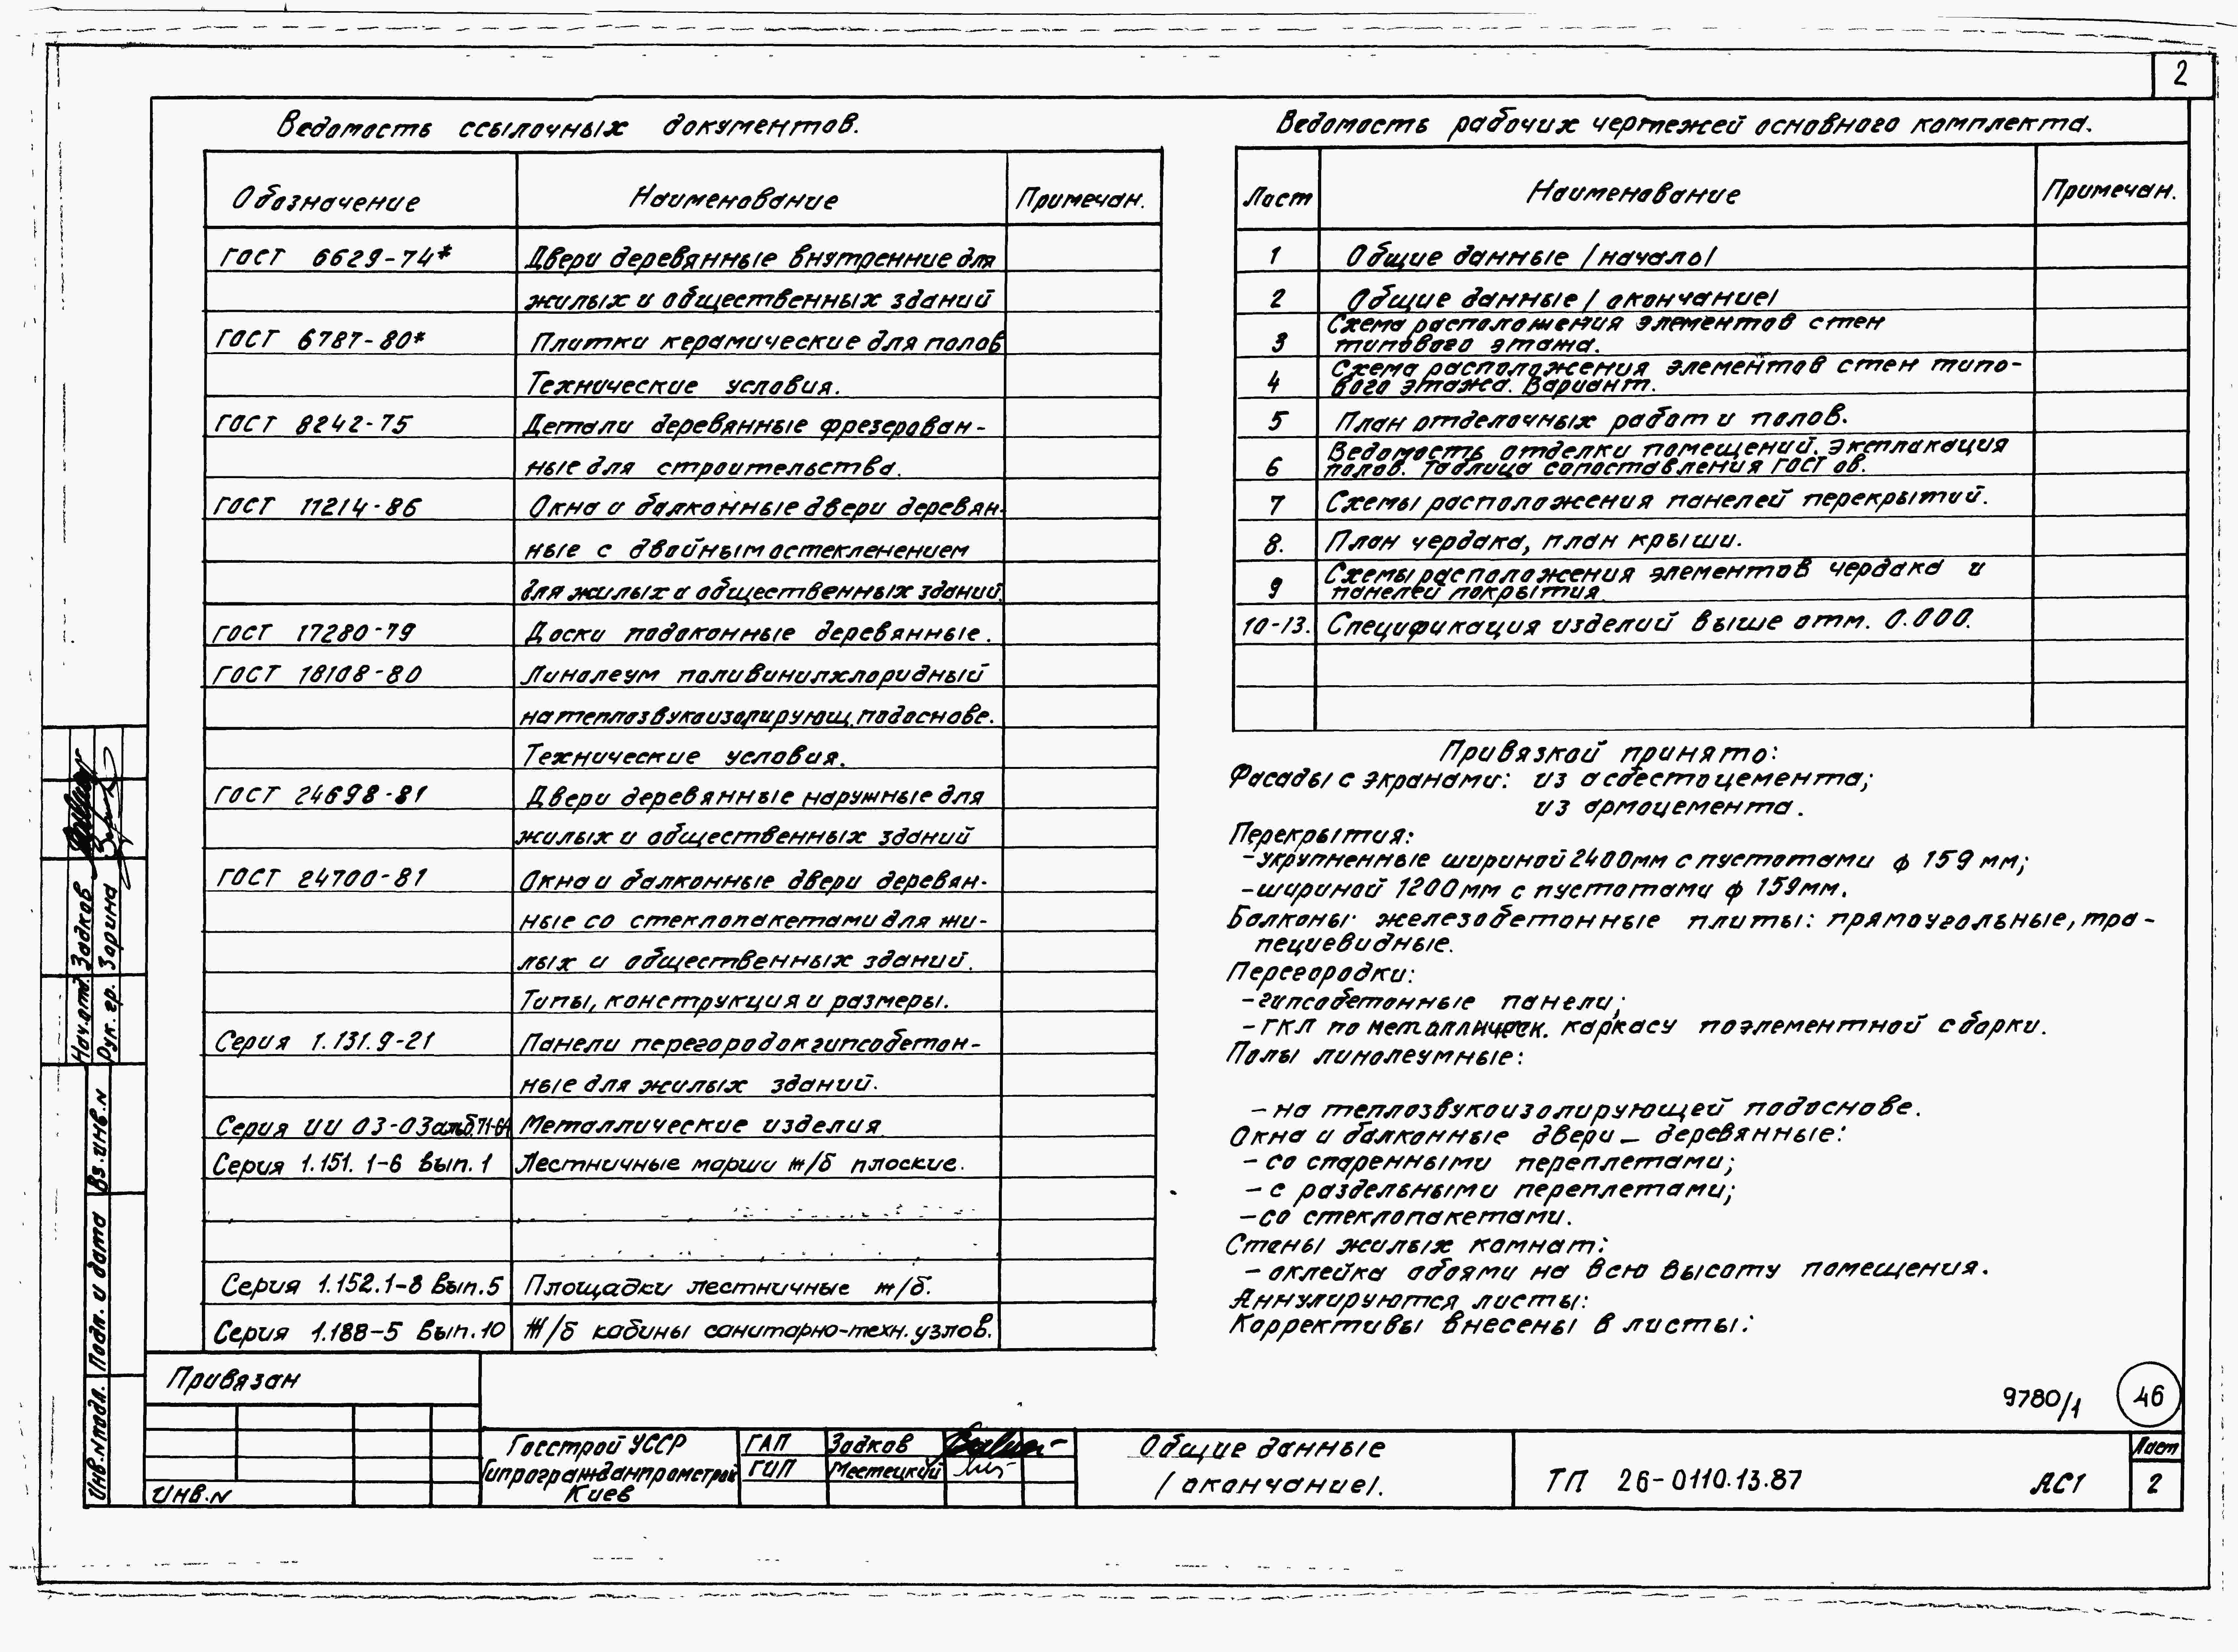 2
Ведомость ссылочных документов.
Обозначение Наименование Примечан.
ГОСТ 6629-74* Двери деревянные внутренние для
жилых и общественных зданий
ГОСТ 6787-80* Плитки керамические для полов
Технические условия.
ГОСТ 8242-75 Детали деревянные фрезерован-
ные для строительства.
ГОСТ 11214-86 Окна и балконные двери деревян-
ные с двойным остекленением
для жилых и общественных зданий.
ГОСТ 17280-79 Доски подоконные деревянные.
ГОСТ 18108-80 Линолеум поливинилхлоридный
на теплозвукоизолирующ. подоснове.
Технические условия.
ГОСТ 24698-81 Двери деревянные наружные для
жилых и общественных зданий
ГОСТ 24700-81 Окна и балконные двери деревян-
ные со стеклопакетами для жи-
лых и общественных зданий.
Типы, конструкция и размеры.
Серия 1.131.9-21 Панели перегородок гипсобетон-
ные для жилых зданий.
Серия ИИ 03-03 альб.71-64 Металлические изделия.
Серия 1.151.1-6 вып.1 Лестничные марши ж/б плоские.
Серия 1.152.1-8 вып.5 Площадки лестничные ж/б.
Серия 1.188-5 вып.10 Ж/б кабины санитарно-техн. узлов.
Ведомость рабочих чертежей основного комплекта.
Лист Наименование Примечан.
1 Общие данные /начало/
2 Общие данные /окончание/
3 Схема расположения элементов стен
типового этажа.
4 Схема расположения элементов стен типо-
вого этажа. Вариант.
5 План отделочных работ и полов.
6 Ведомость отделки помещений. Экспликация
полов. Таблица сопоставления ГОСТ ов.
7 Схемы расположения панелей перекрытий.
8. План чердака, план крыши.
9 Схемы расположения элементов чердака и
панелей покрытия
10-13. Спецификация изделий выше отм. 0.000.
Привязкой принято:
Фасады с экранами: из асбестоцемента;
из армоцемента.
Перекрытия:
- укрупненные шириной 2400мм с пустотами ф 159 мм;
- шириной 1200мм с пустотами ф 159мм.
Балконы: железобетонные плиты: прямоугольные, тра-
пециевидные.
Перегородки:
- гипсобетонные панели;
- ГКЛ по металлическ. каркасу поэлементной сборки.
Полы линолеумные:
- на теплозвукоизолирующей подоснове.
Окна и балконные двери - деревянные:
- со спаренными переплетами;
- с раздельными переплетами;
- со стеклопакетами.
Стены жилых комнат:
- оклейка обоями на всю высоту помещения.
Аннулируются листы:
Коррективы внесены в листы:
9780/1 46
Нач.отд. Задков
Рук. гр. Зорина
Вз.инв.N
Подп. и дата
Инв.Nподл.
Привязан
Инв.N
Госстрой УССР
Гипрогражданпромстрой
Киев
ГАП Задков
ГИП Местецкий
Общие данные
/окончание/.
ТП 26-0110.13.87 АС1
Лист
2